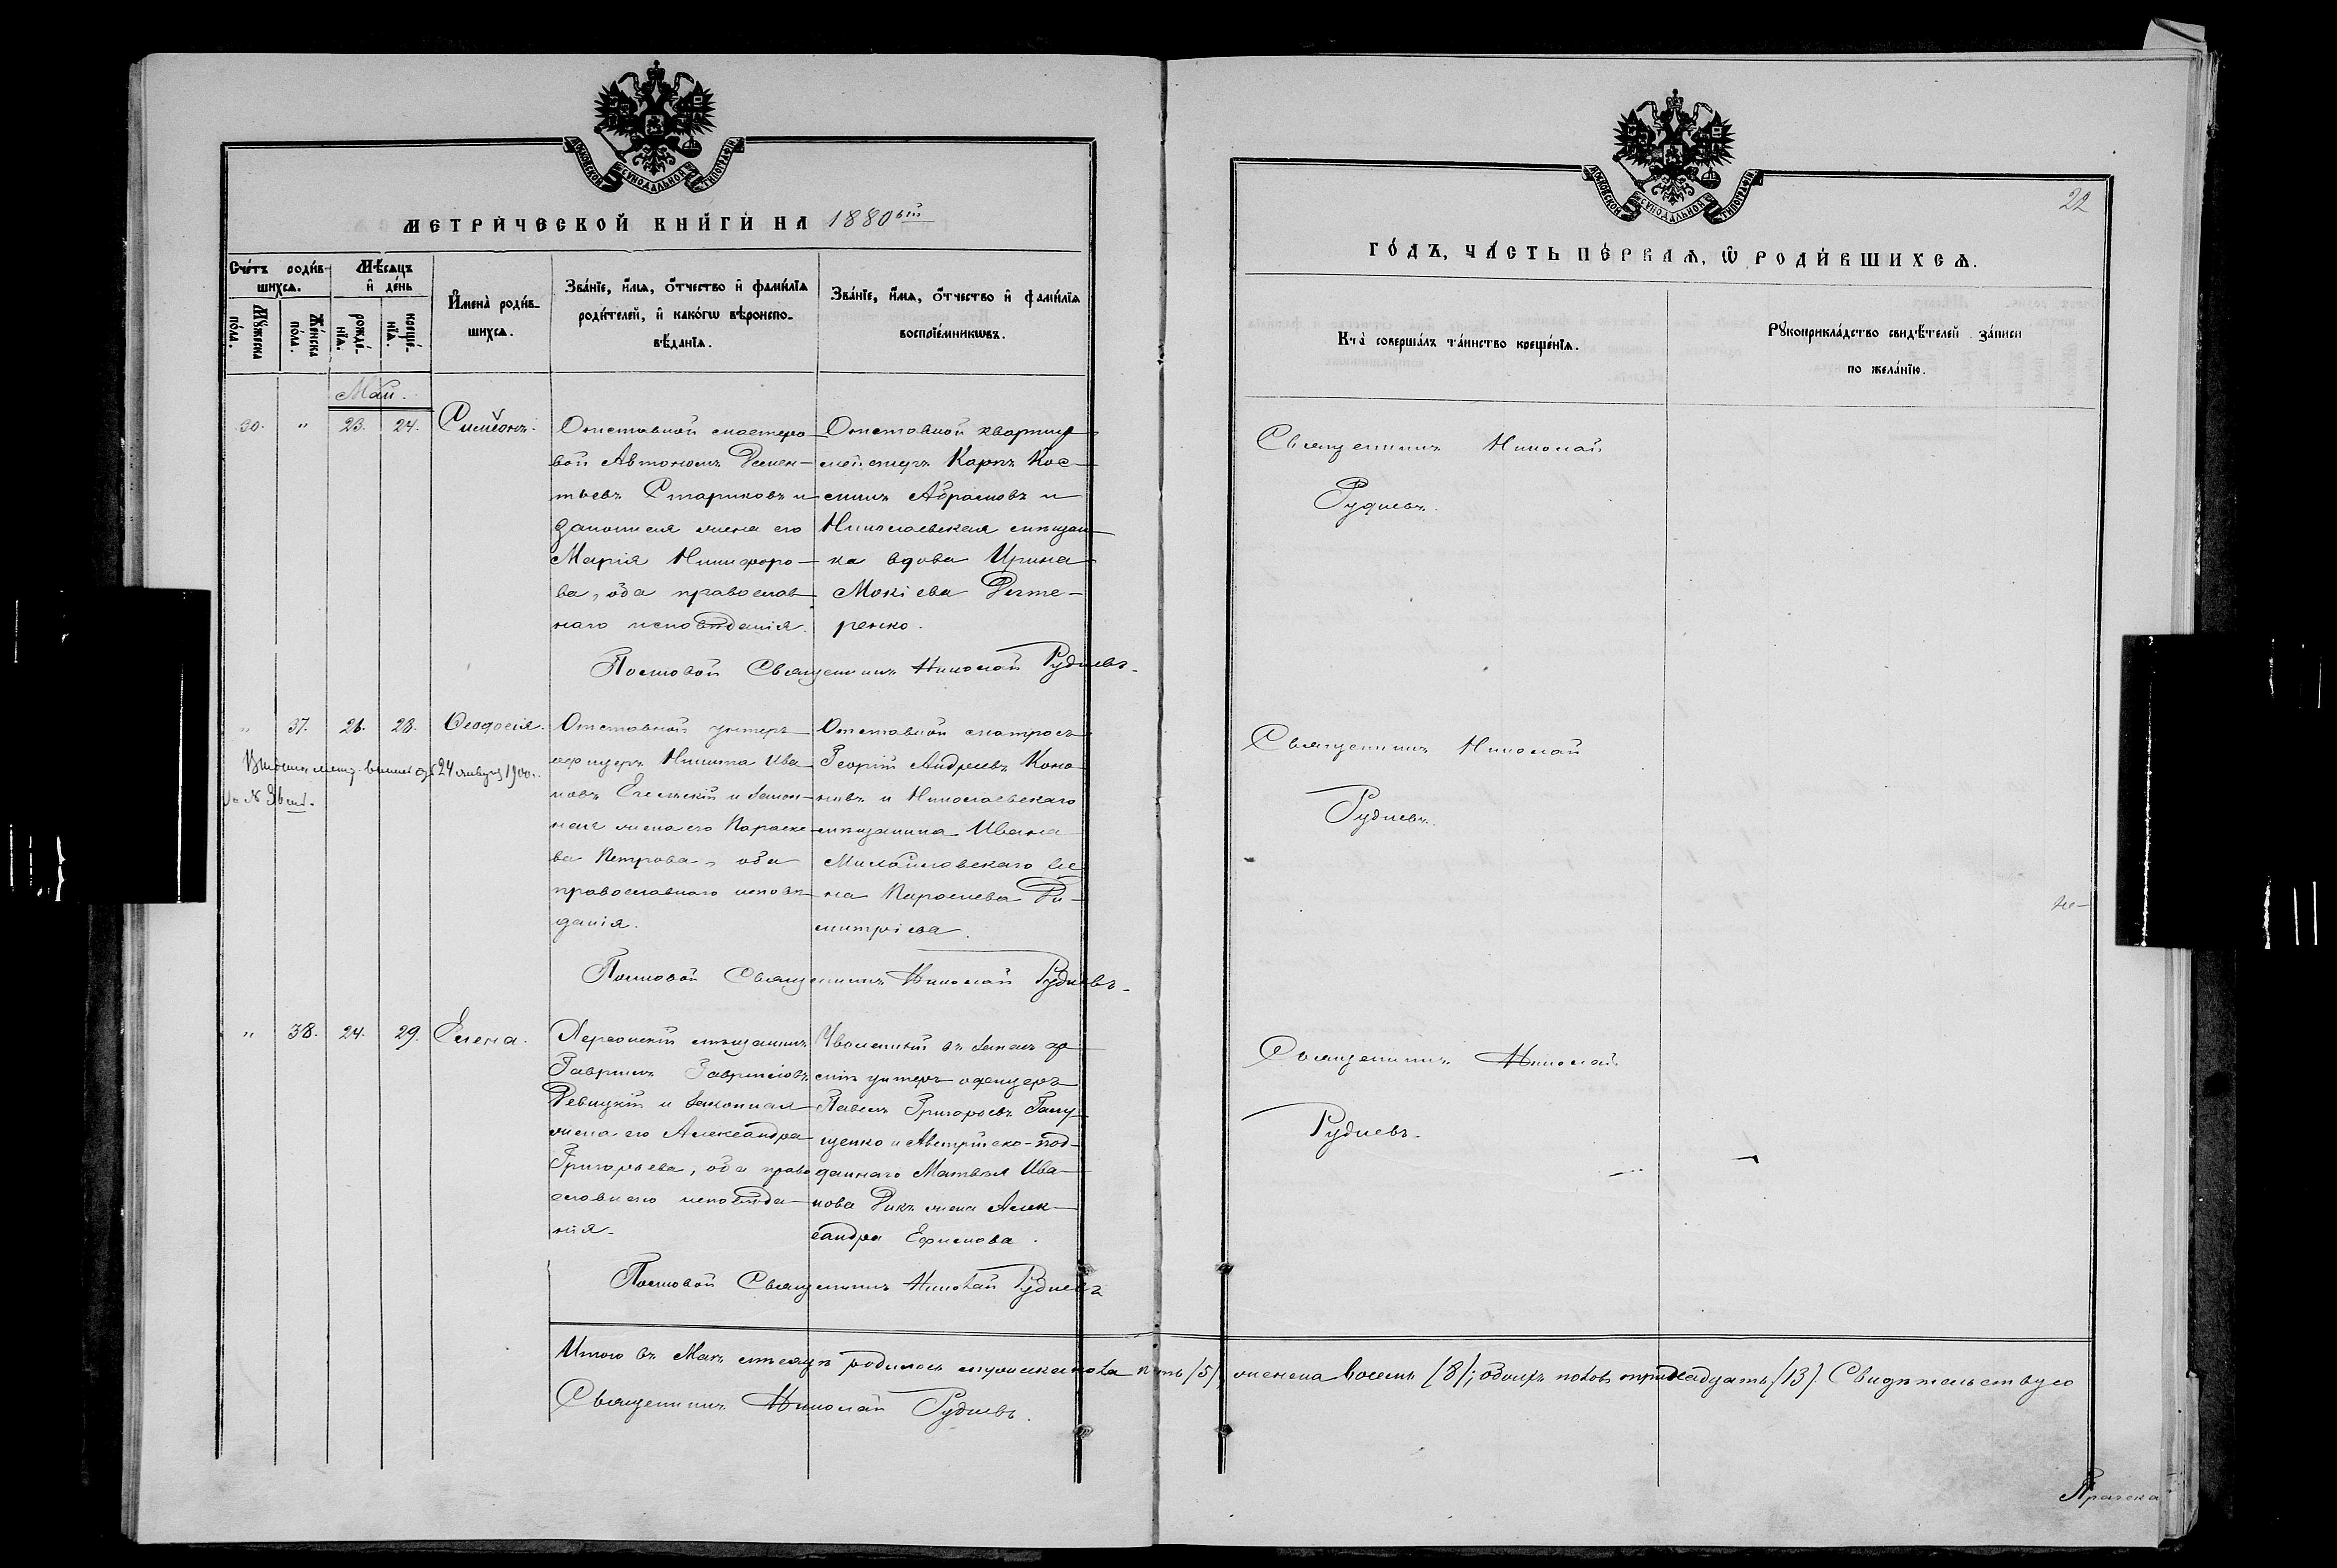 МОСКОВСКОЙ СѴНОДАЛЬНОЙ ТИПОГРАФІИ
МЕТРИЧЕСКОЙ КНИГИ НА 1880ый
Счетъ родившихся.
Мѣсяцъ и день
Имена родившихся.
Званіе, имя, отчество и фамилія родителей, и какогѡ вѣроисповѣданія.
Званіе, имя, отчество и фамилія воспріемникѡвъ.
Мꙋжеска пола.
Женска пола.
рожденія.
крещенія.
Май.
30. " 23. 24. Симеонъ.
Отставной мастеро-
вой Автономъ Демен-
тьевъ Стариковъ и
законная жена его
Марія Никифоро-
ва, оба православ
наго исповѣданія.
Отставной квартир
мейстеръ Карпъ Кос-
минъ Абрамовъ и
Николаевская мѣщан-
ка вдова Ирина
Мокіева Дегте-
ренко.
Приходской Священникъ Николай Рудневъ.
" 37. 26. 28. Ѳеодосія.
24 января 1900 г.
за № 36
Отставной унтеръ
офицеръ Никита Ива-
новъ и закон-
ная жена его Параске-
ва Петрова, оба
православнаго исповѣ-
данія.
Отставной матросъ
Георгій Андреевъ Коно-
новъ и Николаевскаго
мѣщанина Ивана
Михайловскаго же
на Параскева Ди-
митріева.
Священникъ Николай Рудневъ.
" 38. 24. 29. Елена.
Херсонскій мѣщанинъ
Гавріилъ Гавріиловъ
Левицкій и законная
жена его Александра
Григорьева, оба право
славнаго исповѣда-
нія.
Уволенный въ запасъ ар
міи унтеръ офицеръ
Павелъ Григорьевъ Галу-
щенко и Австрійско-под-
даннаго Матвѣя Ива-
нова жена Алек-
сандра Ефимова.
Священникъ Николай Рудневъ
Итого въ Маѣ мѣсяцѣ родилось мужеска пола пять /5/, женска восемь /8/; обоихъ половъ тринадцать /13/ Свидѣтельствую
Священникъ Николай Рудневъ.
МОСКОВСКОЙ СѴНОДАЛЬНОЙ ТИПОГРАФІИ
22
ГОДЪ, ЧАСТЬ ПЕРВАѦ, Ѿ РОДИВШИХСѦ.
Кто совершалъ таинство крещенія.
Рꙋкоприкладство свидѣтелей записи по желанію.
Священникъ Николай
Рудневъ.
Священникъ Николай
Рудневъ.
Священникъ Николай
Рудневъ.